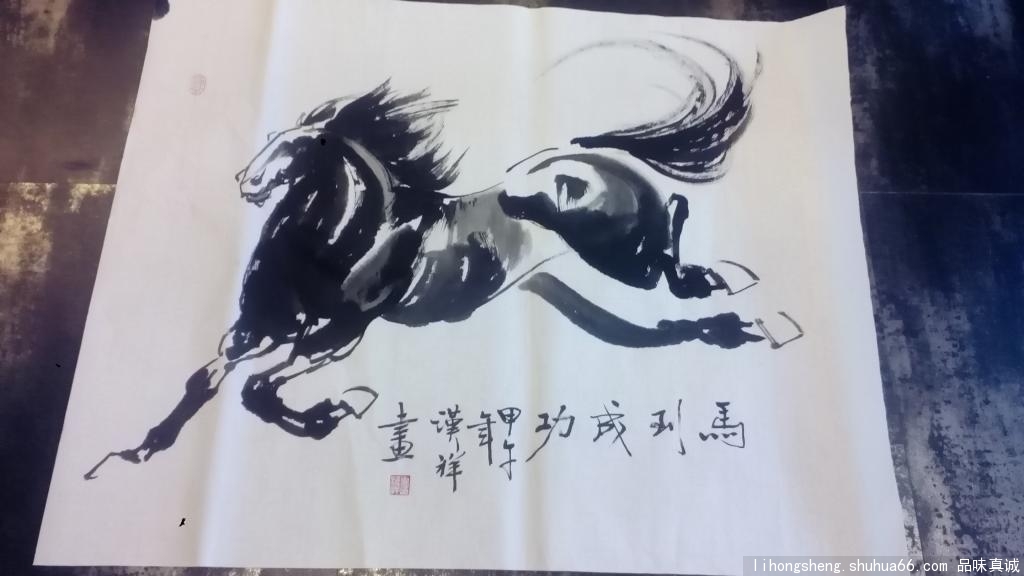 馬到成功
甲午
年
漢祥
畫
lihongsheng.shuhua66.com 品味真诚